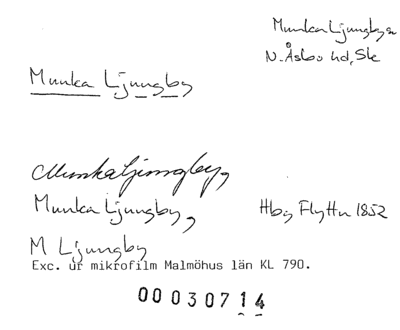 Munka Ljungby sn
N. Åsbo hd, Sk
Munka Ljungby
Munkaljungby,
Munka Ljungby,
Hbg Flyttn 1852
M Ljungby
Exc. ur mikrofilm Malmöhus län KL 790.
00030714